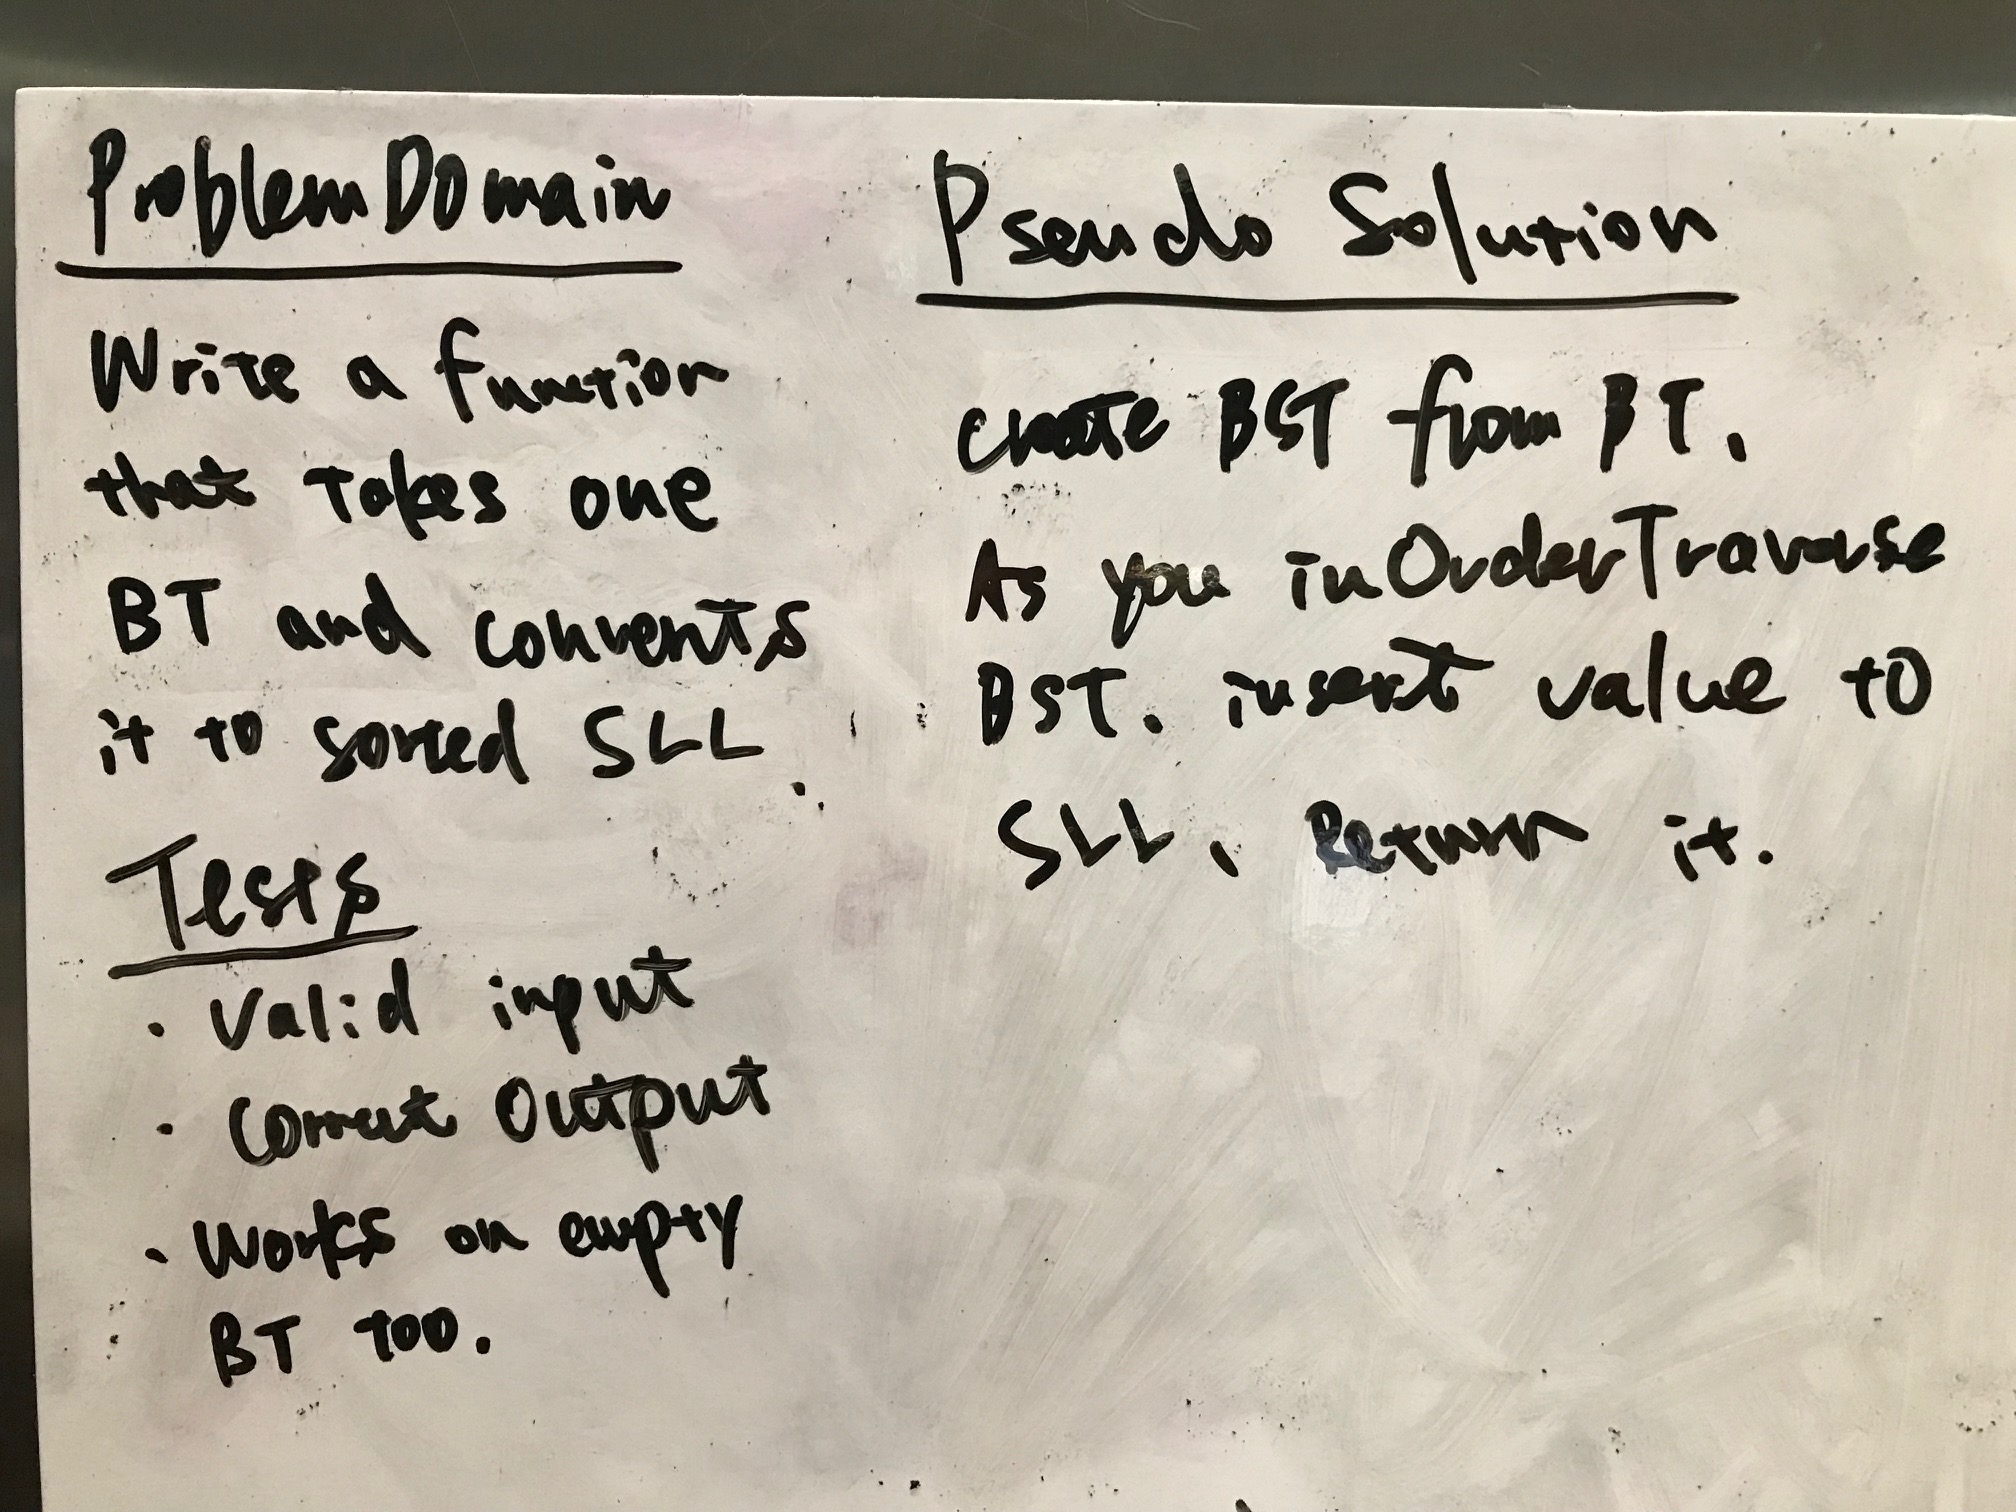 Problem Domain
Write a function
that takes one
BT and converts
it to sorted SLL.
Tests
· Valid input
· Correct Output
· Works on empty
BT too.
Pseudo Solution
Create BST from BT.
As you inOrderTraverse
BST. insert value to
SLL. Return it.